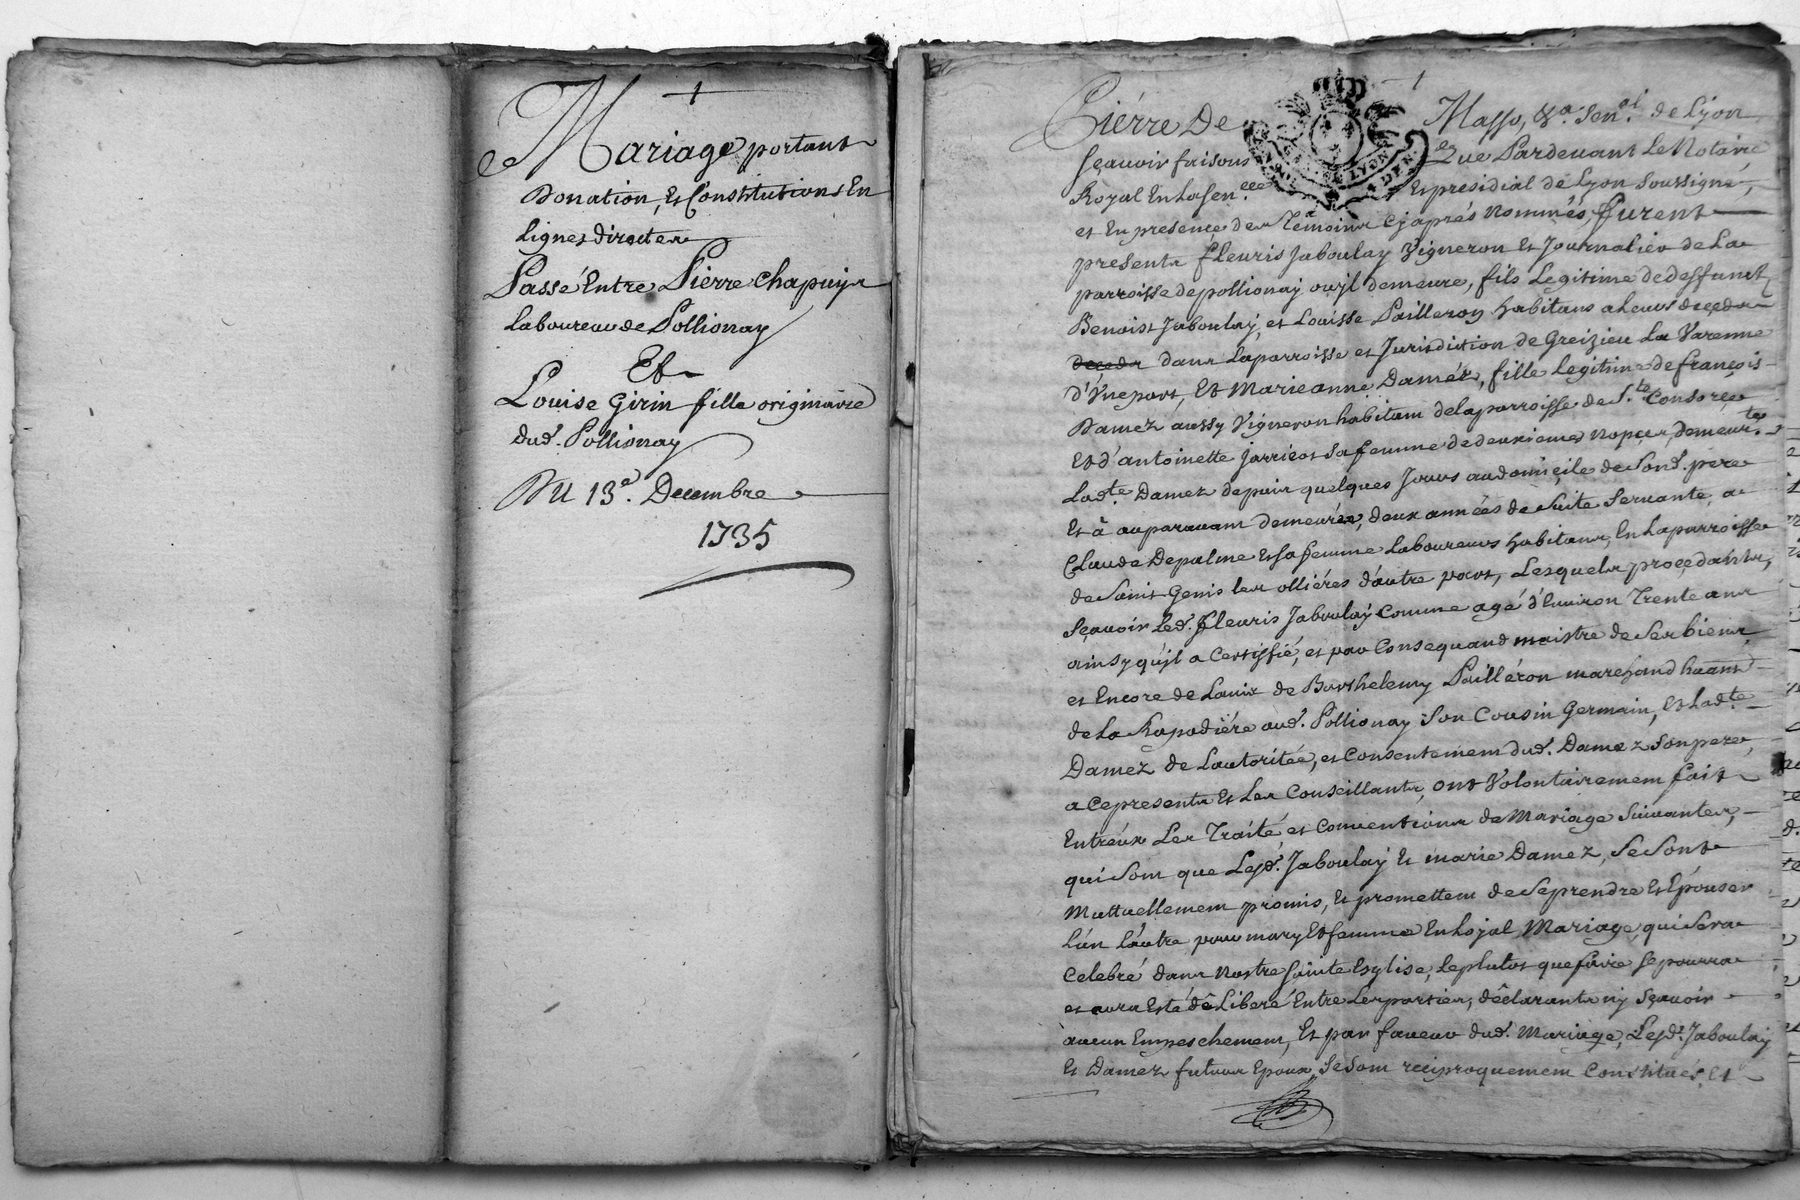 Mariage portant
Donation, Et Constitutions En
Ligne directe
Passé Entre Pierre Chapuy
Laboureur de Pollionay
Et
Louise Girin fille originaire
dud. Pollionay
Du 13e. Decembre
1735
Pierre De Masso, sen.al de Lyon
sçavoir faisons Que Pardevant Le Notaire
Royal En La sen.ée Et presidial de Lyon soussigné,
et En presence des Témoins cy aprés nommés, furent
presents fleuris Jaboulay Vigneron Et Journalier de La
parroisse de pollionay ou yl demeure, fils Legitime de deffunct
Benoist Jaboulay, et Louisse Pailleron habitans a Leurs deceds
deceds dans La parroisse et Jurisdiction de Greizieu La Varenne
d'Une part, Et Marie anne Damez, fille Legitime de françois
Damez aussy Vigneron habitant de la parroisse de S.te Consorce
Et d'antoinette Jarricot sa femme de deuxiemes nopces, demeur.te
Lad.te Damez depuis quelques Jours au domicile de Sond. pere
Et à auparavant demeurée, deux années de Suite Servante, a
Claude Depalme Et sa femme Laboureurs habitans, En La parroisse
de Saint Genis les ollières d'autre part, Lesquels procedants,
Sçavoir Led. fleuris Jaboulay Comme agé d'Environ Trente ans
ainsy qu'yl a Certiffié, et par Consequand maistre de Ses biens
et Encore de L'avis de Barthelemy Pailléron marchand hãant
de La Rapodière aud. Pollionay Son Cousin Germain, Et Lad.te
Damez de L'autoritée, et Consentement dud. Damez Son pere,
a Ce presents Et Les Conseillants, ont Volontairement fait
Entréux Les Traité et Conventions de Mariage Suivantes,
qui Sont que Lesd. Jaboulay Et marie Damez, Se Sont
Muttuellement promis, Et promettent de Se prendre Et Epouser
L'un L'autre pour mary Et femme En Loyal Mariage, qui Sera
Celebré dans Nostre Sainte Esglise, Le plutot que faire Se pourra
et aura Esté déLiberé Entre Les parties, déclarants ny Sçavoir
aucun Empeschement, Et par faveur dud. Mariage, Lesd. Jaboulay
Et Damez futurs Epoux, Se Sont reciproquement Constitués, Et